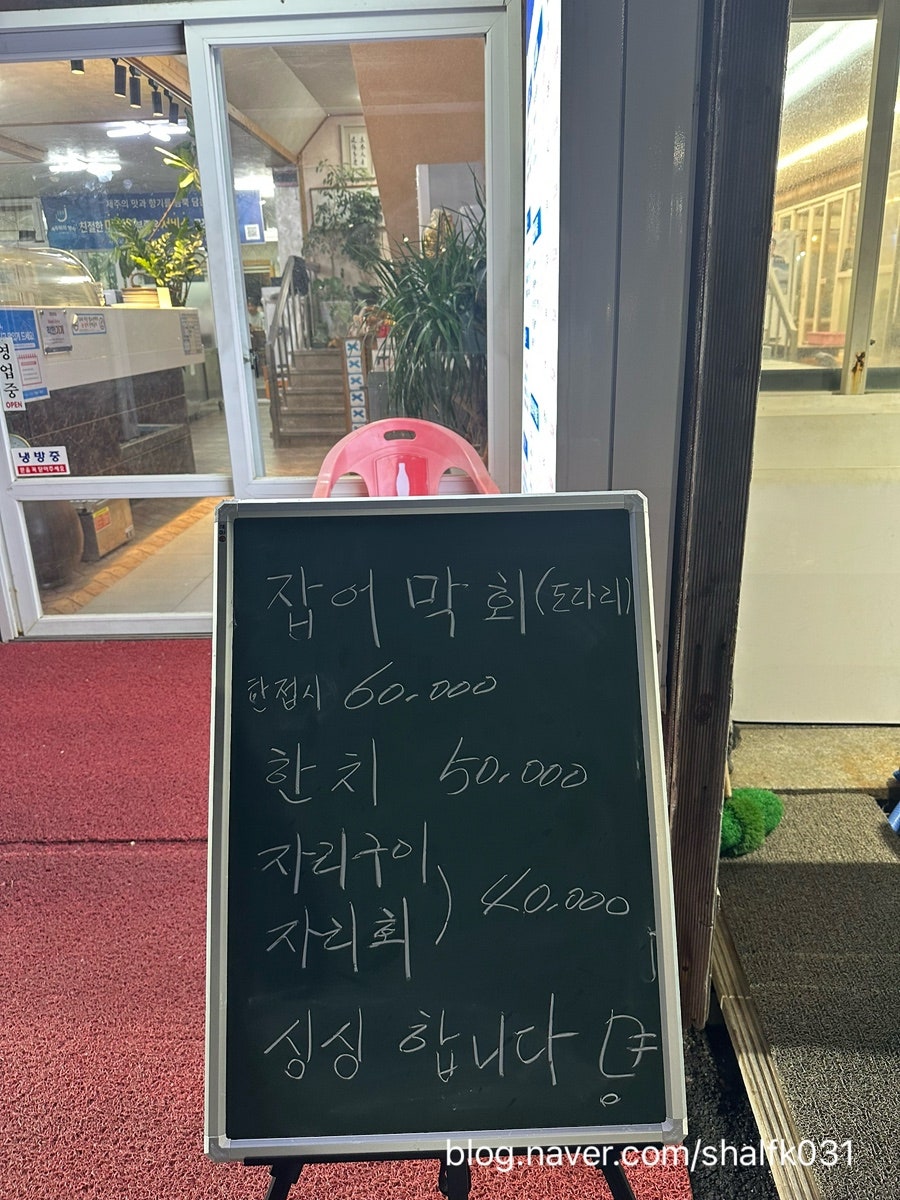 제주의 맛과 향기를
친절한
영업중
OPEN
냉방중
문을 꼭 닫아주세요
잡어 막회(도다리)
한접시 60.000
한치 50.000
자리구이
자리회
) 40.000
싱싱 합니다
blog.naver.com/shalfk031